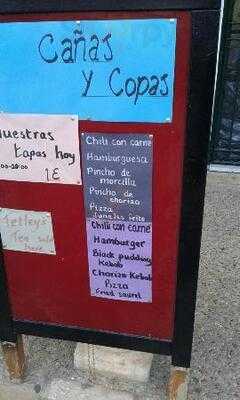 Cañas
y Copas
Nuestras
tapas hoy
1€
Chili con carne
Hamburguesa
Pincho de
morcilla
Pincho de
chorizo
Pizza
frito
Chili con carne
Hamburger
Black pudding
Kebab
Chorizo Kebab
Pizza
Fried
Tetleys
Tea
here